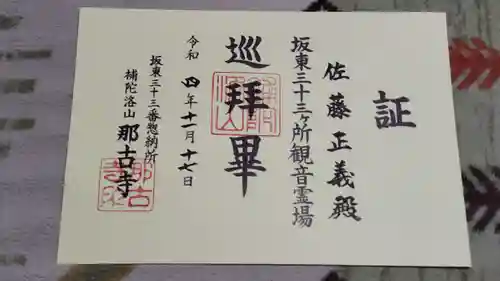 証
佐藤正義殿
坂東三十三ヶ所観音霊場
巡拝畢
令和四年十一月十七日
坂東三十三番惣納所
補陀洛山那古寺